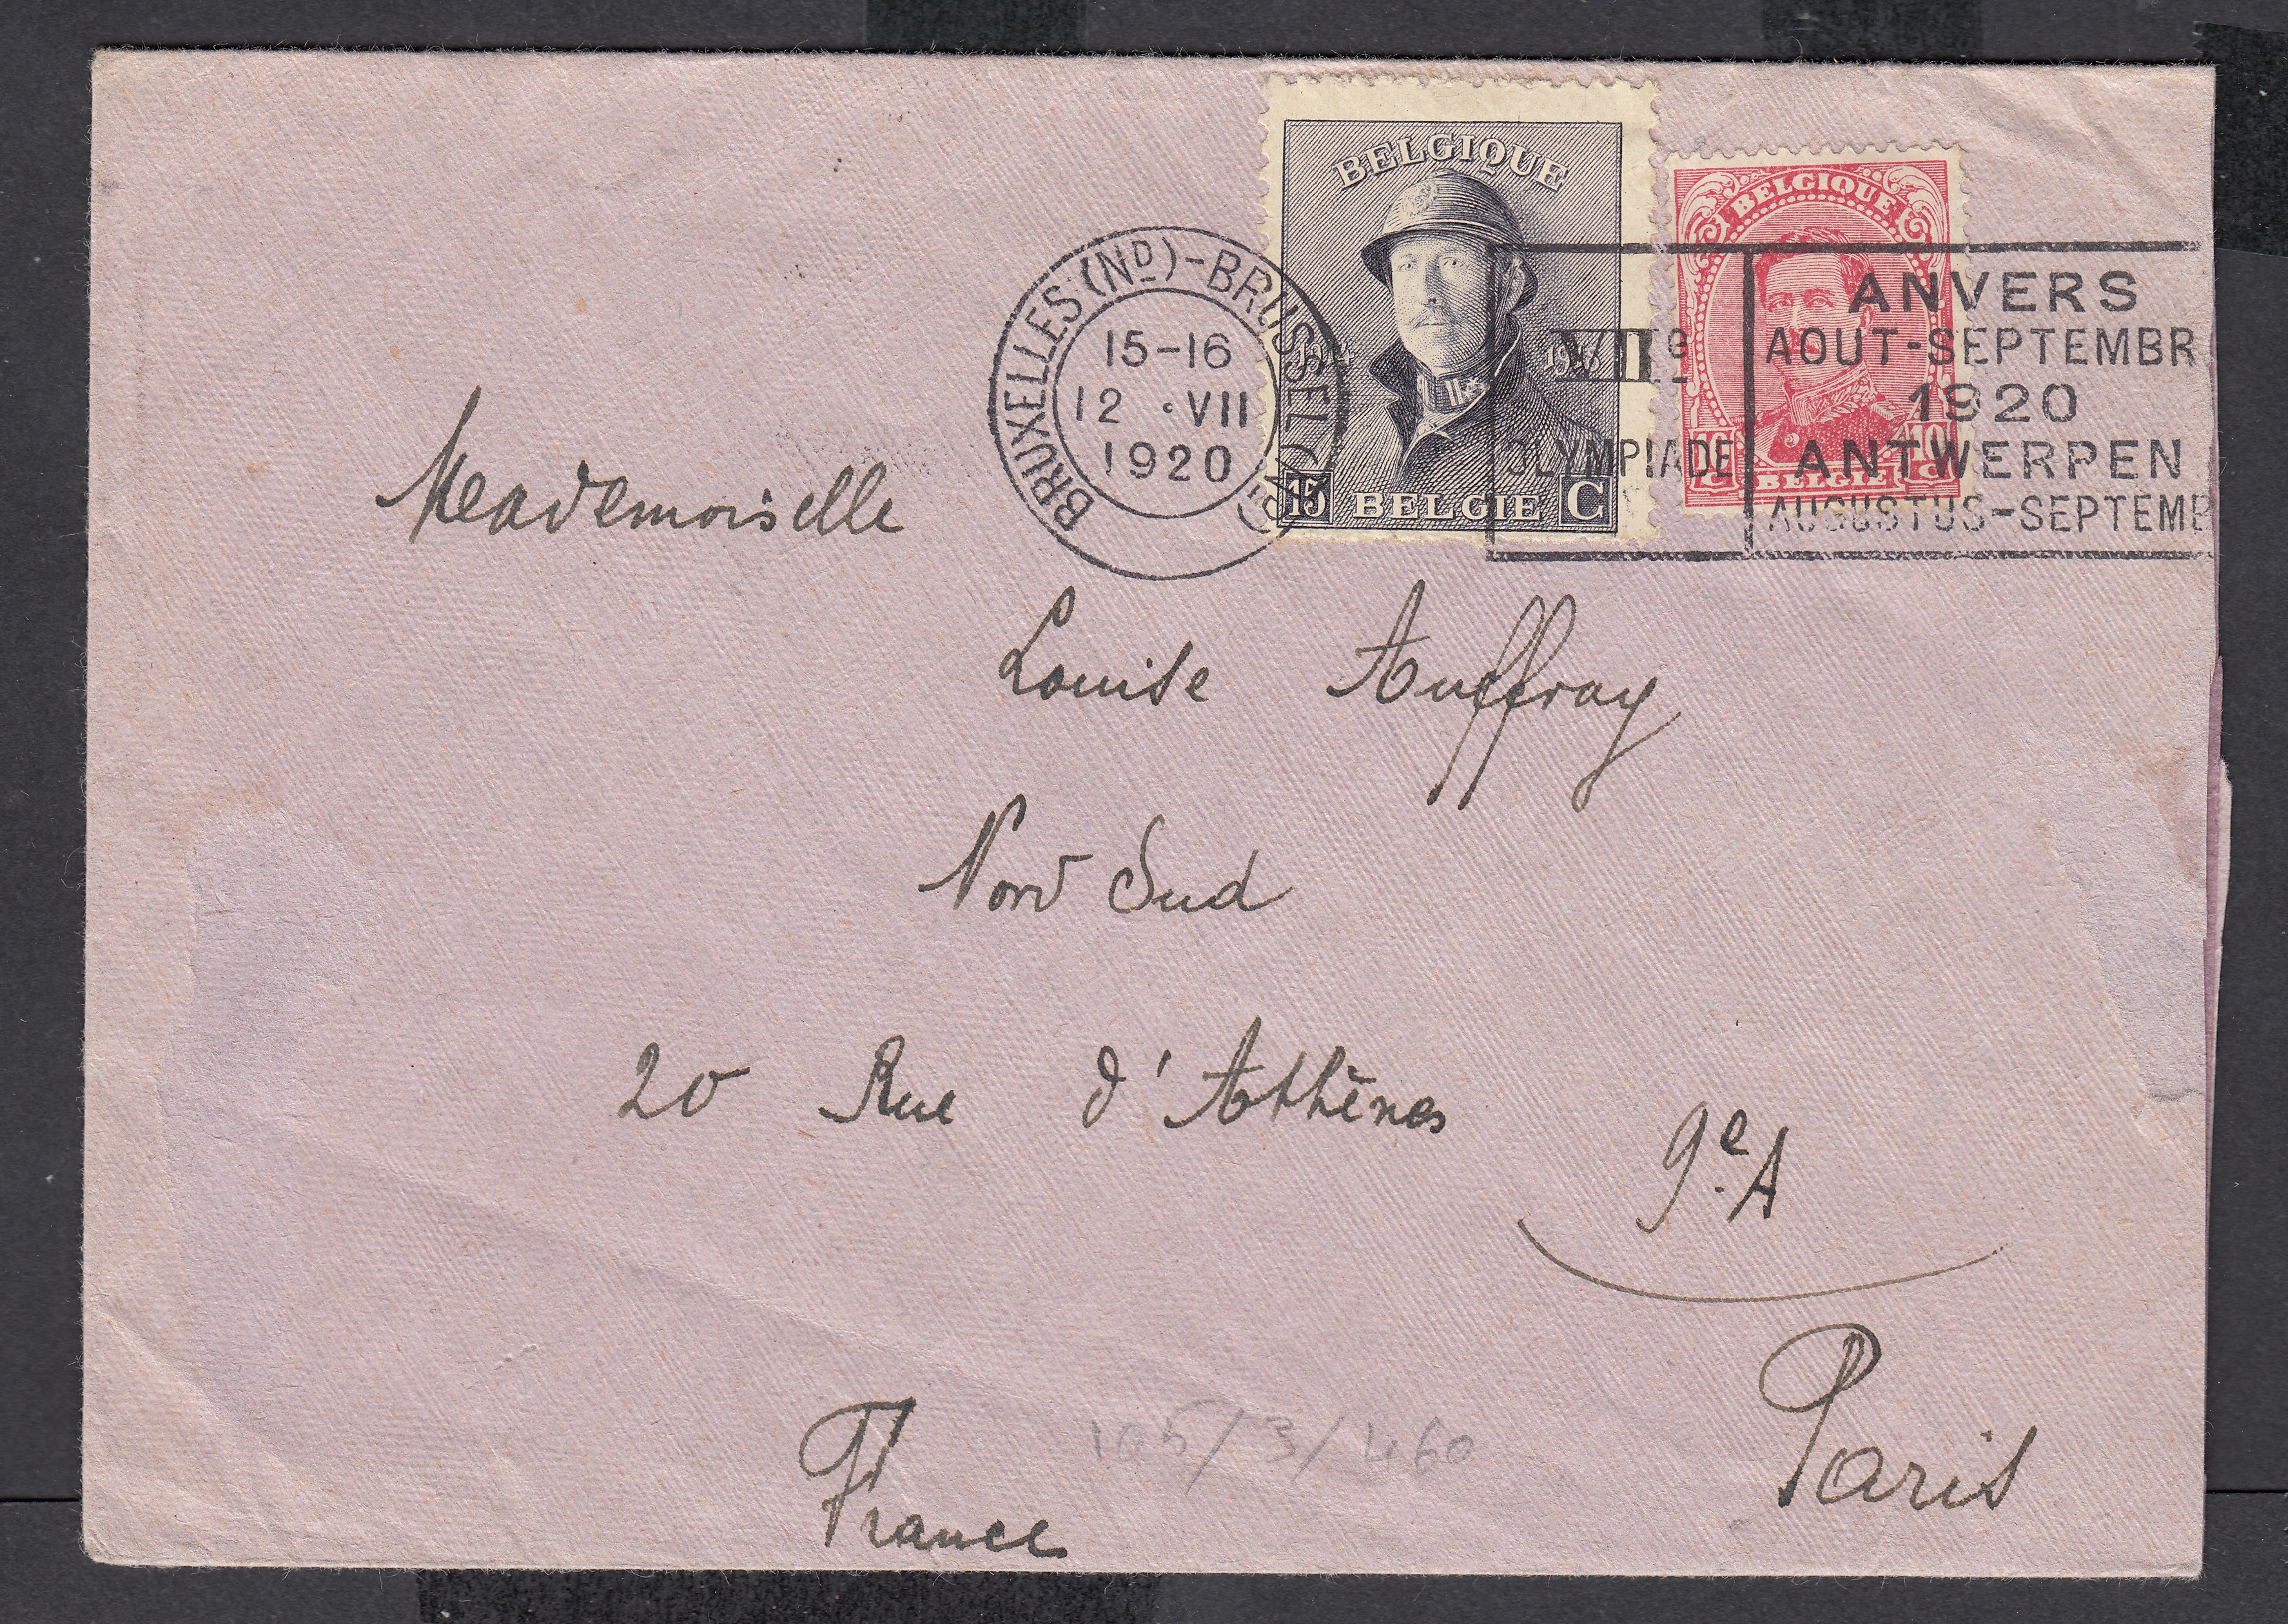 BELGIQUE
1914 1918
15 BELGIE C
BELGIQUE
10 BELGIË 10
BRUXELLES (ND)-BRUSSEL
15-16
12 • VII
1920
VIIe
OLYMPIADE
ANVERS
AOUT-SEPTEMBR
1920
ANTWERPEN
AUGUSTUS-SEPTEMB
Meademoiselle
Louise Auffray
Nord Sud
20 Rue d'Athènes
9e. A
Paris
France
105/3/460